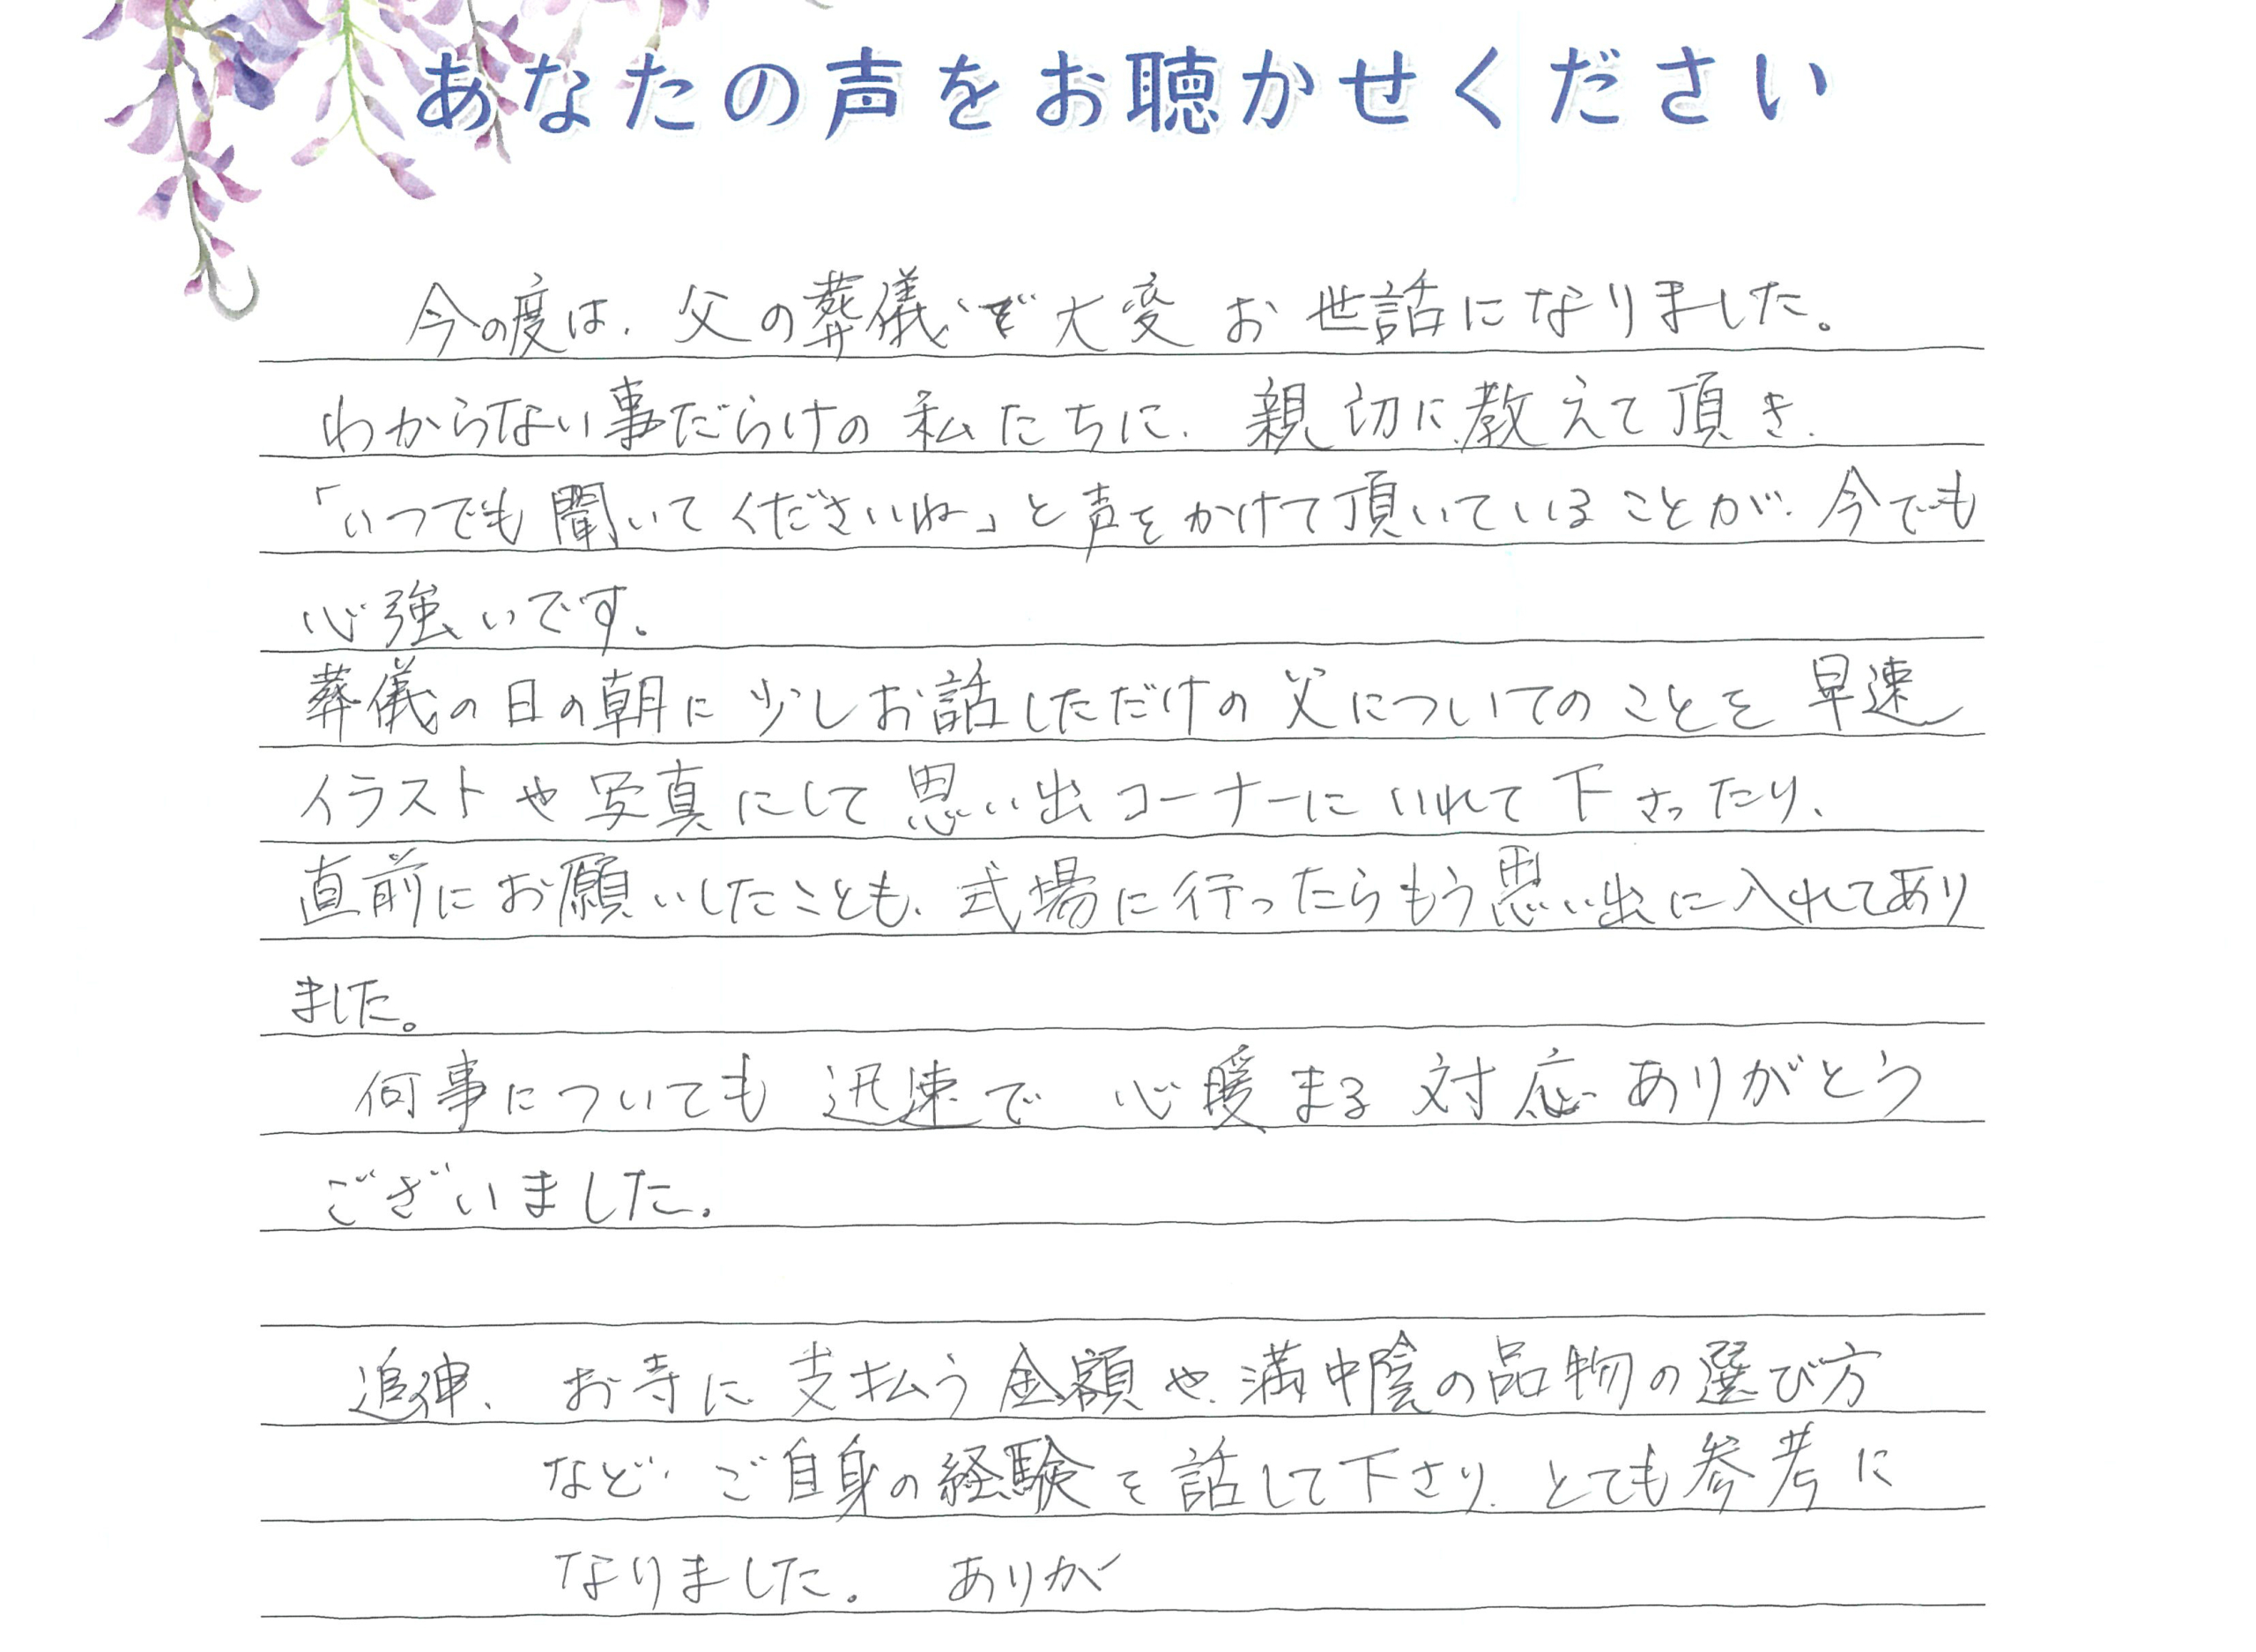 あなたの声をお聴かせください
今の度は、父の葬儀で大変お世話になりました。
わからない事だらけの私たちに、親切に教えて頂き、
「いつでも聞いてくださいね」と声をかけて頂いていることが、今でも
心強いです。
葬儀の日の朝に少しお話しただけの父についてのことを早速
イラストや写真にして思い出コーナーにいれて下さったり、
直前にお願いしたことも、式場に行ったらもう思い出に入れてあり
ました。
何事についても迅速で心暖まる対応ありがとう
ございました。
追伸、お寺に支払う金額や、満中陰の品物の選び方
など、ご自身の経験を話して下さり、とても参考に
なりました。ありが